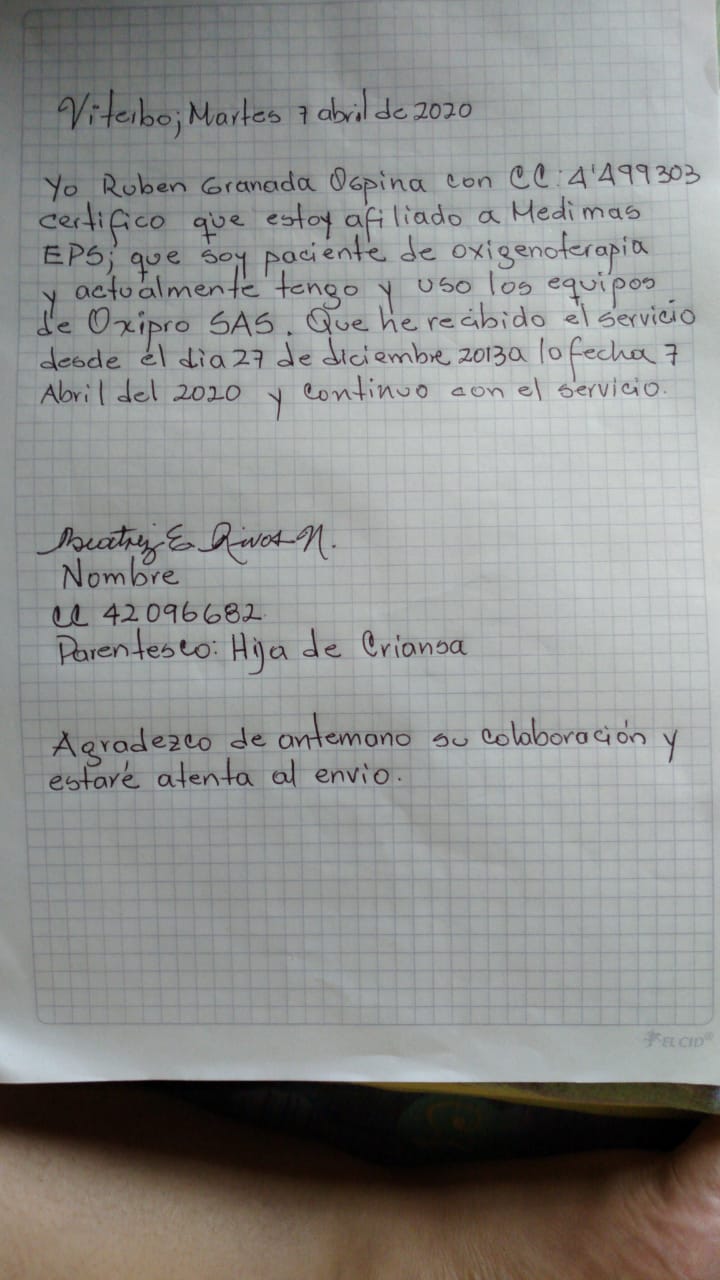 Viterbo; Martes 7 abril de 2020
Yo Ruben Granada Ospina con CC: 4'499303
certifico que estoy afiliado a Medimas
EPS; que soy paciente de oxigenoterapia
y actualmente tengo y uso los equipos
de Oxipro SAS. Que he recibido el servicio
desde el dia 27 de diciembre 2013 a la fecha 7
Abril del 2020 y continuo con el servicio.
Beatriz E Rivas N.
Nombre
CC 42096682
Parentesco: Hija de Criansa
Agradezco de antemano su colaboración y
estaré atenta al envio.
EL CID